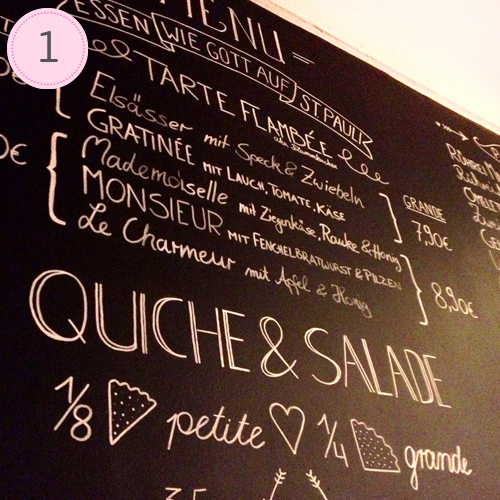 1
MENU
ESSEN WIE GOTT AUF ST. PAULI
TARTE FLAMBÉE
Elsässer mit Speck & Zwiebeln
GRATINÉE MIT LAUCH, TOMATE, KÄSE
Mademoiselle mit Ziegenkäse, Rauke & Honig
MONSIEUR MIT FENCHELBRATWURST & PILZEN
Le Charmeur mit Apfel & Honig
GRANDE
7,90€
8,90€
QUICHE & SALADE
1/8 petite 1/4 grande